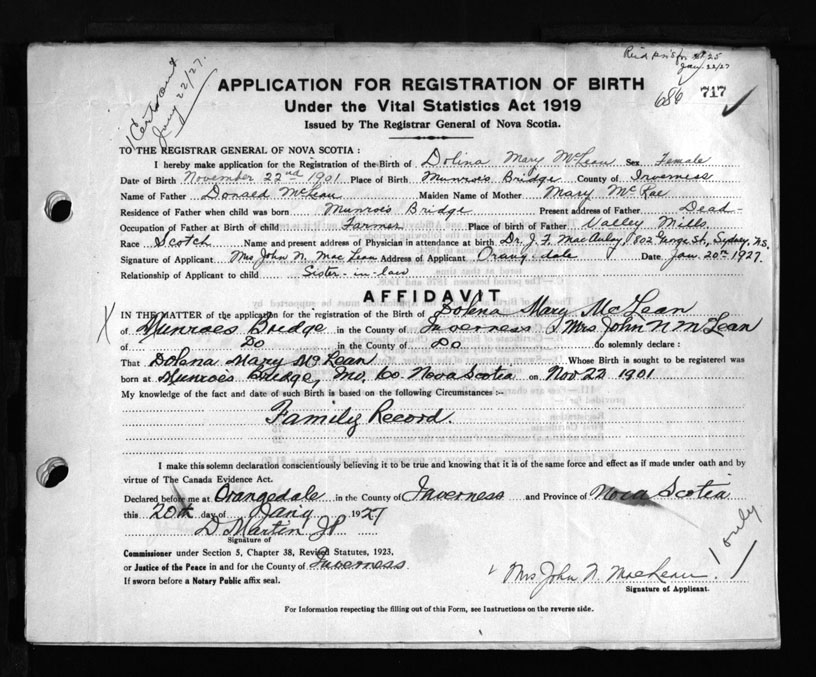 Reid pris for
Jan. 22/27
1 Cert sent
Jany 22/27.
APPLICATION FOR REGISTRATION OF BIRTH
686 717
Under the Vital Statistics Act 1919
Issued by The Registrar General of Nova Scotia.
TO THE REGISTRAR GENERAL OF NOVA SCOTIA :
I hereby make application for the Registration of the Birth of Dolina Mary McLean Sex Female
Date of Birth November 22nd 1901 Place of Birth Munroe's Bridge County of Inverness
Name of Father Donald McLean Maiden Name of Mother Mary McRae
Residence of Father when child was born Munroe's Bridge Present address of Father Dead-
Occupation of Father at Birth of child Farmer Place of birth of Father Valley Mills
Race Scotch Name and present address of Physician in attendance at birth Dr. J. F. MacAulay 802 George St., Sydney N.S.
Signature of Applicant Mrs John N. MacLean Address of Applicant Orangedale Date Jan. 20th 1927.
Relationship of Applicant to child Sister-in-law
AFFIDAVIT
IN THE MATTER of the application for the registration of the Birth of Dolena Mary McLean
X of Munroes Bridge in the County of Inverness I Mrs John N McLean
of Do in the County of Do do solemnly declare :
That Dolena Mary McLean Whose Birth is sought to be registered was
born at Munroe's Bridge, Inv. Co. Nova Scotia on Nov 22 1901
My knowledge of the fact and date of such Birth is based on the following Circumstances :—
Family Record.
I make this solemn declaration conscientiously believing it to be true and knowing that it is of the same force and effect as if made under oath and by
virtue of The Canada Evidence Act.
Declared before me at Orangedale in the County of Inverness and Province of Nova Scotia
this 20th day of Jan'y 1927
D. Martin JP
Signature of
Commissioner under Section 5, Chapter 38, Revised Statutes, 1923,
or Justice of the Peace in and for the County of Inverness
If sworn before a Notary Public affix seal.
1 only
Mrs John N. MacLean.
Signature of Applicant.
For Information respecting the filling out of this Form, see Instructions on the reverse side.